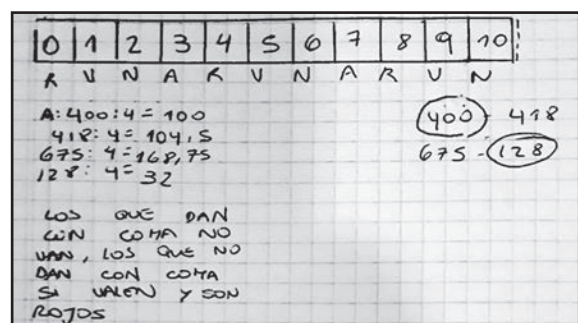 0 1 2 3 4 5 6 7 8 9 10
R V N A R V N A R V N
A: 400:4 = 100
418: 4 = 104,5
675: 4 = 168,75
128: 4 = 32
400 - 418
675 - 128
LOS QUE DAN
CON COMA NO
VAN, LOS QUE NO
DAN CON COMA
SI VALEN Y SON
ROJOS